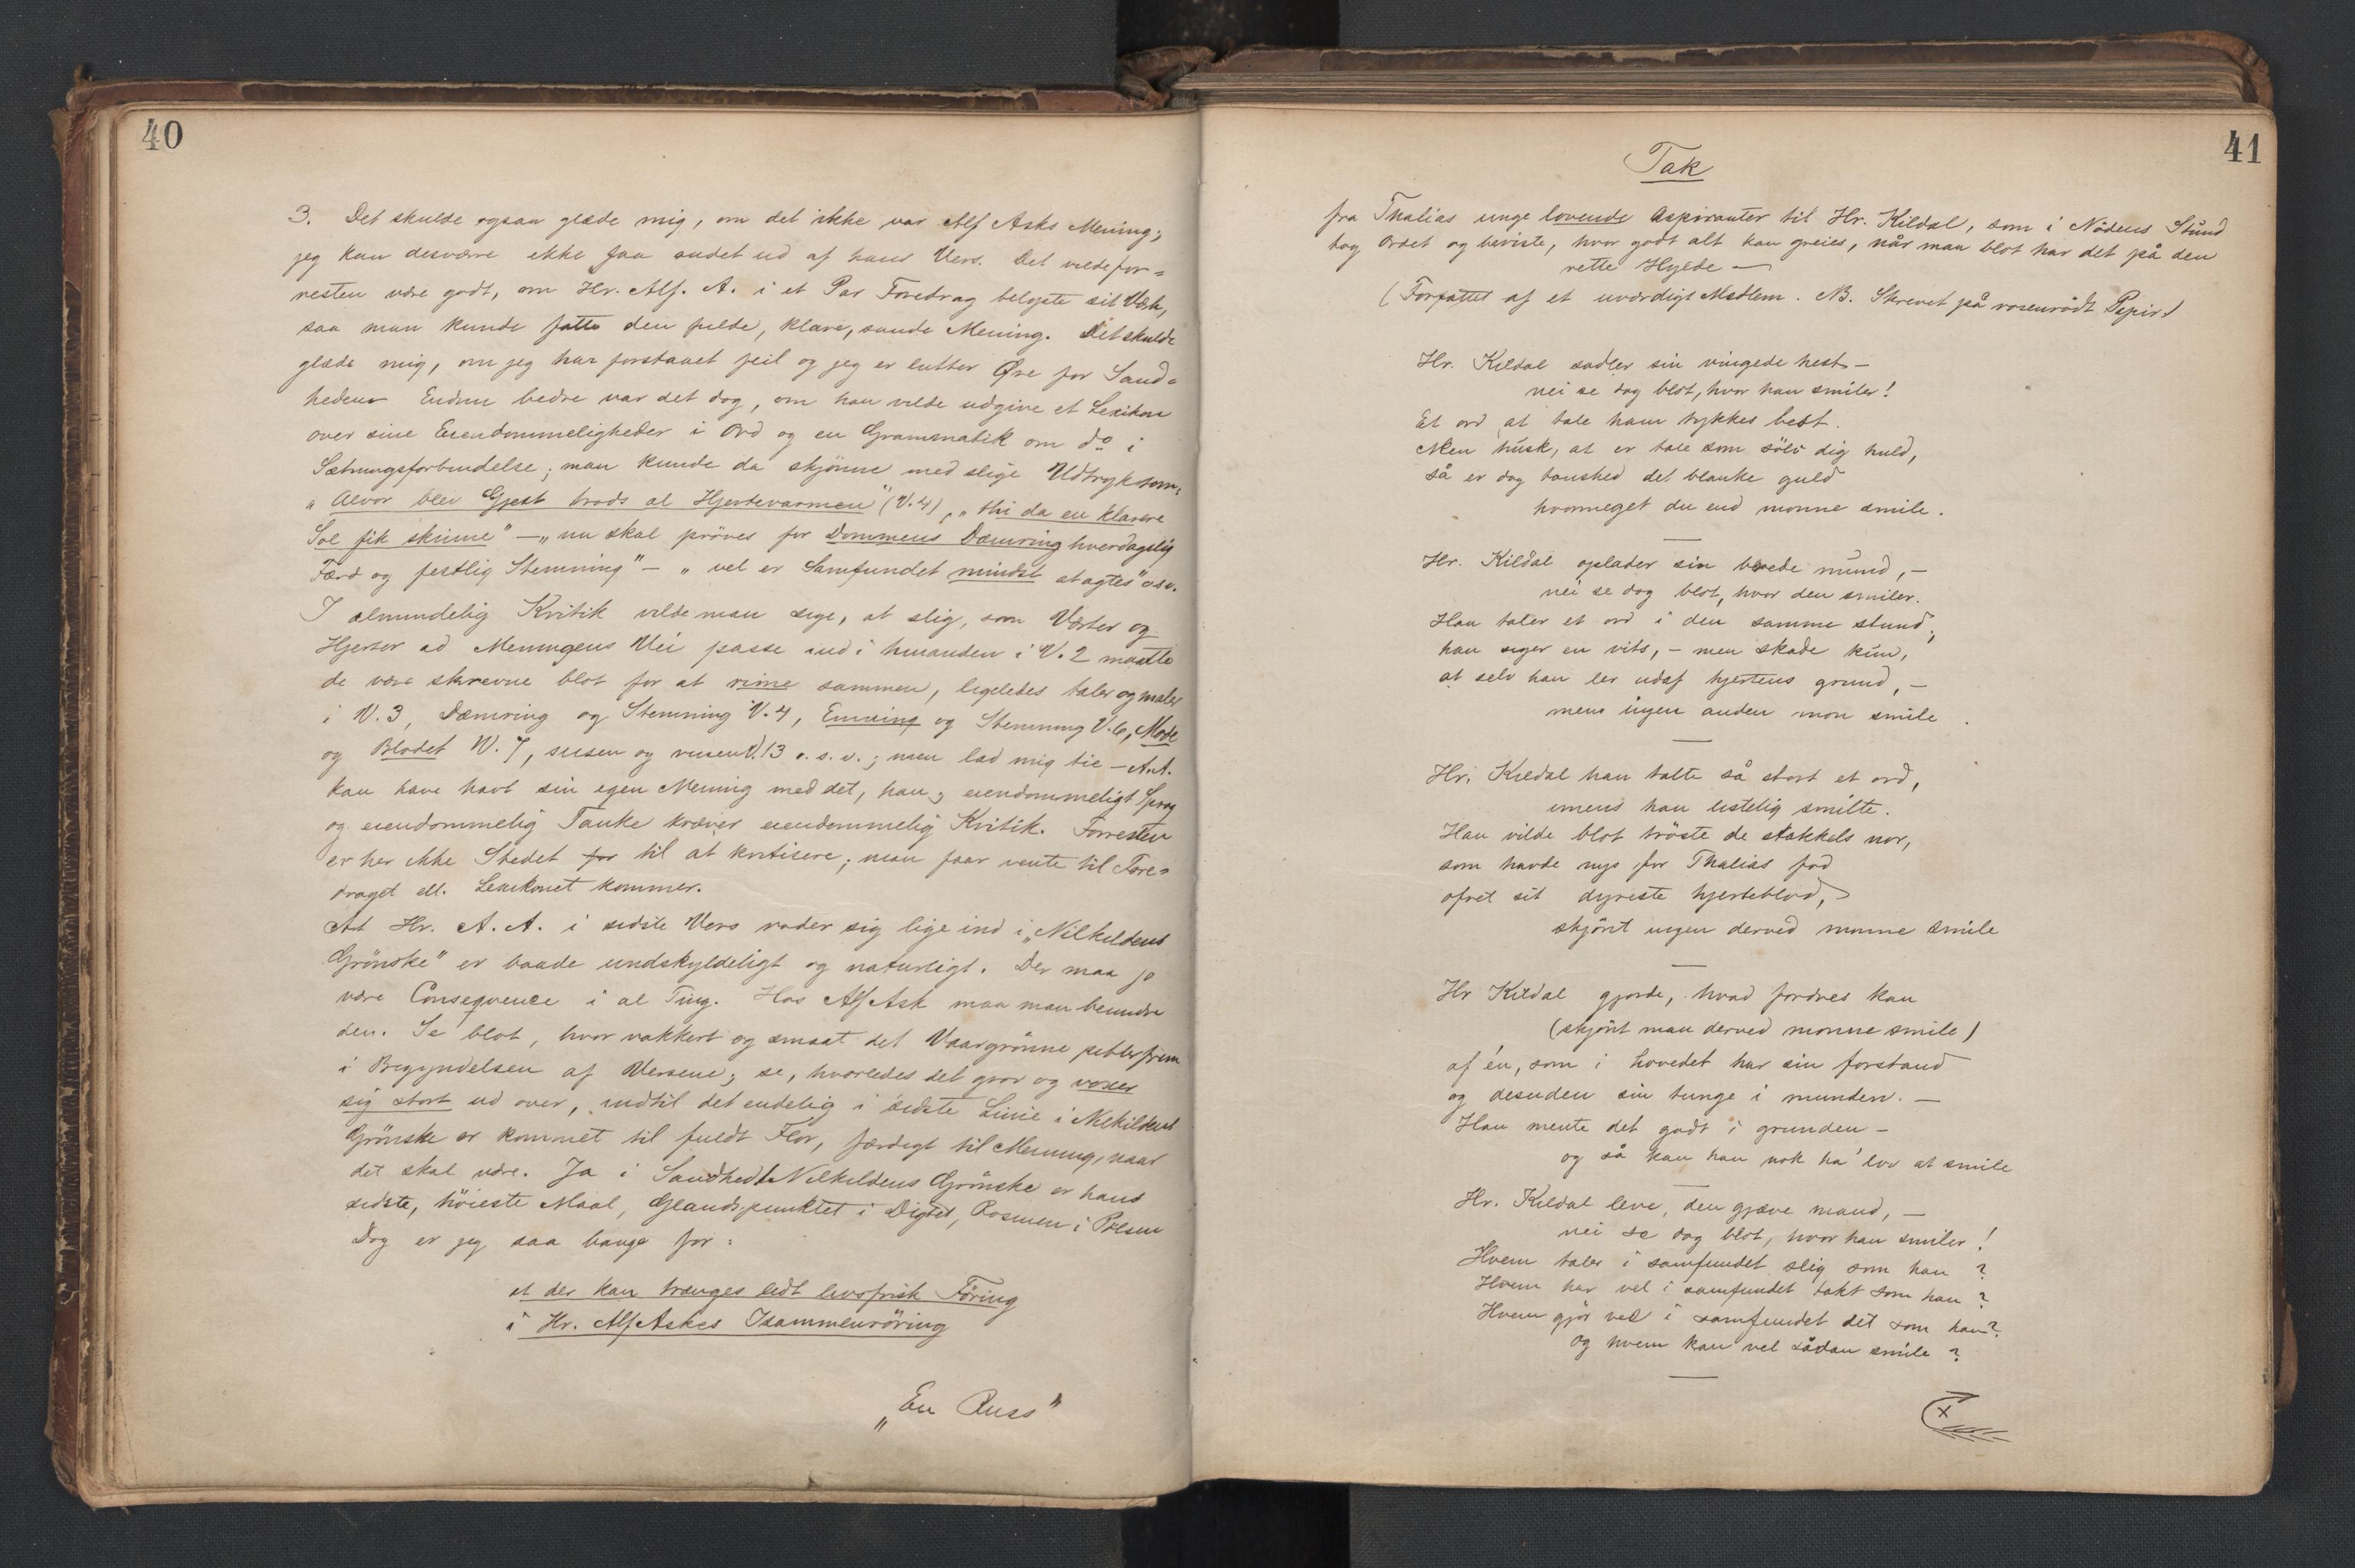 40
3. Det skulde ogsaa glæde mig, om det ikke var Alf Asks Mening;
jeg kan desværre ikke faa andet ud af hans Vers. Det vilde for=
resten være godt, om Hr. Alf. A. i et Par Foredrag belyste sit Værk,
saa man kunde fatte den fulde, klare, sunde Mening. Det skulde
glæde mig, om jeg har forstaaet feil og jeg er lutter Øre for Sand=
heden. Endnu bedre var det dog, om han vilde udgive et Lexikon
over sine Eiendommeligheder i Ord og en Grammatik om do i
Sætningsforbindelse; man kunde da skjönne med slige Udtryk som:
"Alvor blev Gjest trods al Hjertevarmen" (V.4), "thi da en klarere
Sol fik skinne" — "nu skal pröves for Dommens Dæmring hverdagslig
Færd og festlig Stemning" — "vel er Samfundet mindst at agtes" osv.
I almindelig Kritik vilde man sige, at slig, som Værter og
Hjerter ad Meningens Vei passe ind i hinanden i V.2 maatte
de være skrevne blot for at rime sammen, ligeledes taler og maler
i V.3, Dæmring og Stemning V.4, Emning og Stemning V.6, Mode
og Blodet V.7, susen og rusen V.13 o.s.v.; men lad mig tie — A.A.
kan have havt sin egen Mening med det, han; eiendommeligt Sprog
og eiendommelig Tanke kræver eiendommelig Kritik. Forresten
er her ikke Stedet for til at kritisere; man faar vente til Fore=
draget ell. Lexikonet kommer.
At Hr. A. A. i sidste Vers vader sig lige ind i "Nilkildens
Grönske" er baade undskyldeligt og naturligt. Der maa jo
være Conseqvence i al Ting. Hos Alf Ask maa man beundre
den. Se blot, hvor vakkert og smaat det Vaargrönne pibler frem
i Begyndelsen af Versene; se, hvorledes det gror og voxer
sig stort ud over, indtil det endelig i sidste Linie i Nilkildens
Grönske er kommet til fuldt Flor, færdigt til Mening, naar
det skal være. Ja i Sandhed! Nilkildens Grönske er hans
sidste, höieste Maal, Glandspunktet i Digtet, Rosinen i Pölsen
Dog er jeg saa bange for:
at der kan trænges lidt livsfrisk Föring
i Hr. Alf Askes Isammenröring
"En Russ"
41
Tak
fra Thalias unge lovende Aspiranter til Hr. Kildal, som i Nödens Stund
tog Ordet og beviste, hvor godt alt kan greies, når man blot har det på den
rette Hylde —
(Forfattet af et uværdigt Medlem. NB. Skrevet på rosenrödt Papir)
Hr. Kildal sadler sin vingede hest —
nei se dog blot, hvor han smiler!
Et ord at tale ham tykkes best.
Men husk, at er tale som sölv dig huld,
så er dog taushed det blanke guld
hvormeget du end monne smile.
Hr. Kildal oplader sin brede mund, —
nei se dog blot, hvor den smiler.
Han taler et ord i den samme stund,
han siger en vits, — men skade kun,
at selv han ler udaf hjertens grund, —
mens ingen anden mon smile.
Hr. Kildal han talte så stort et ord,
imens han listelig smilte.
Han vilde blot tröste de stakkels nor,
som havde nys for Thalias fod
ofret sit dyreste hjerteblod,
skjönt ingen derved monne smile
Hr Kildal gjorde, hvad fordres kan
(skjönt man derved monne smile)
af én, som i hovedet har sin forstand
og desuden sin tunge i munden. —
Han mente det godt i grunden —
og så kan han nok ha' lov at smile
Hr. Kildal leve, den gjæve mand, —
nei se dog blot, hvor han smiler!
Hvem taler i samfundet slig som han?
Hvem har vel i samfundet takt som han?
Hvem gjör vel i samfundet det som han?
og hvem kan vel sådan smile?